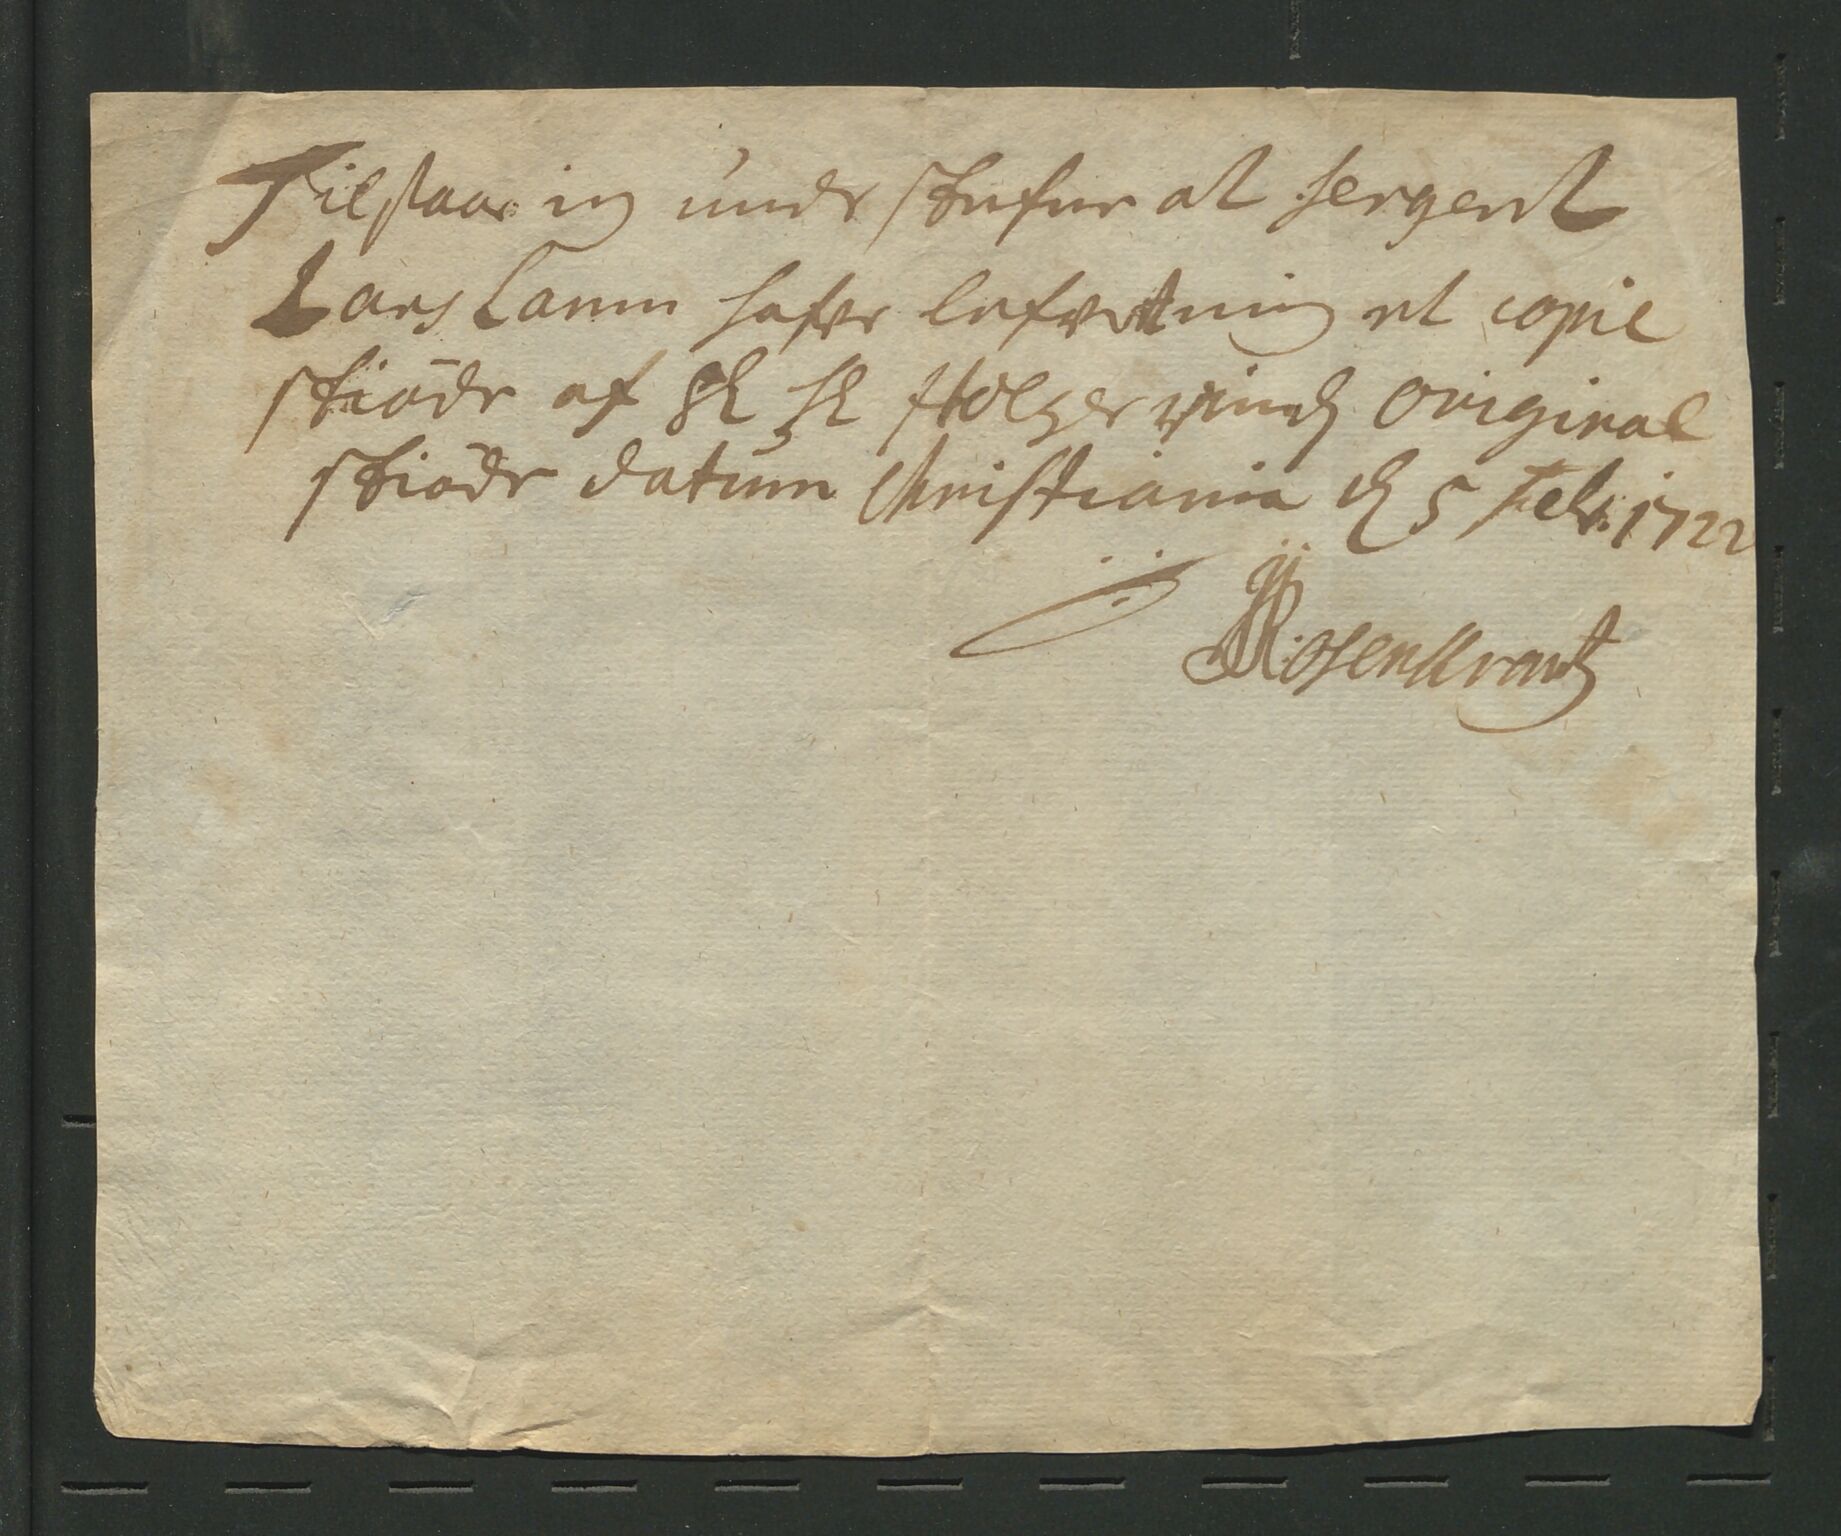 Tilstaar ieg under skrefne at sergent
Lars Lamm hafver lefvert mig et copie
skiöde af Sl Hr Holger vinds Original
skiöde datum Christiania d 5 Febr: 1722
Rosenkrantz